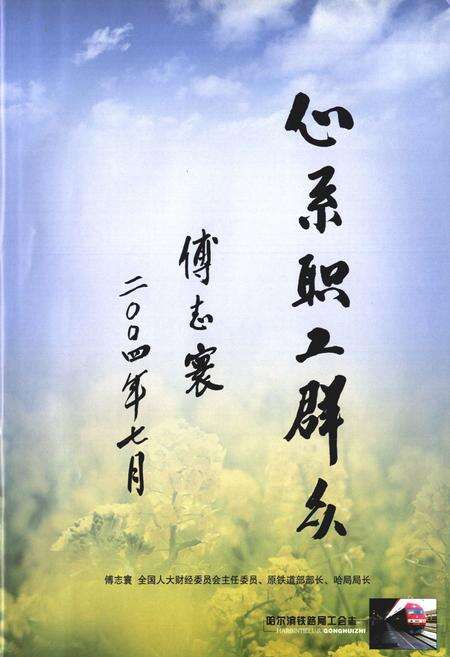 心系职工群众
傅志寰
二〇〇四年七月
傅志寰 全国人大财经委员会主任委员、原铁道部部长、哈局局长
哈尔滨铁路局工会志
GONGHUIZHI